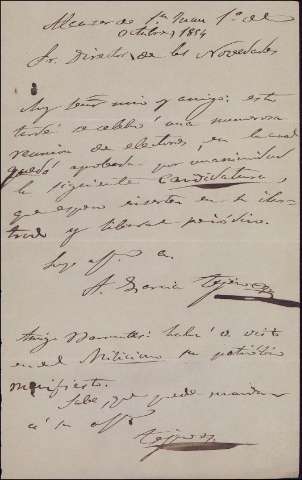 Alcazar de Sn Juan 1º de
Octubre, 1854
Sr. Director de las Novedades
Muy Señor mio y amigo: esta
tarde se celebró una numerosa
reunion de electores, en la cual
quedó aprobada por unanimidad
la siguiente Candidatura,
que espero inserten en su ilus-
trado y liberal periódico.
Suyo affº.
A. Garcia Tejero
Amigo Barrantes: habrá V. visto
en el Miliciano su patriótico
manifiesto.
Sabe, que puede mandar
á su affº.
Tejero